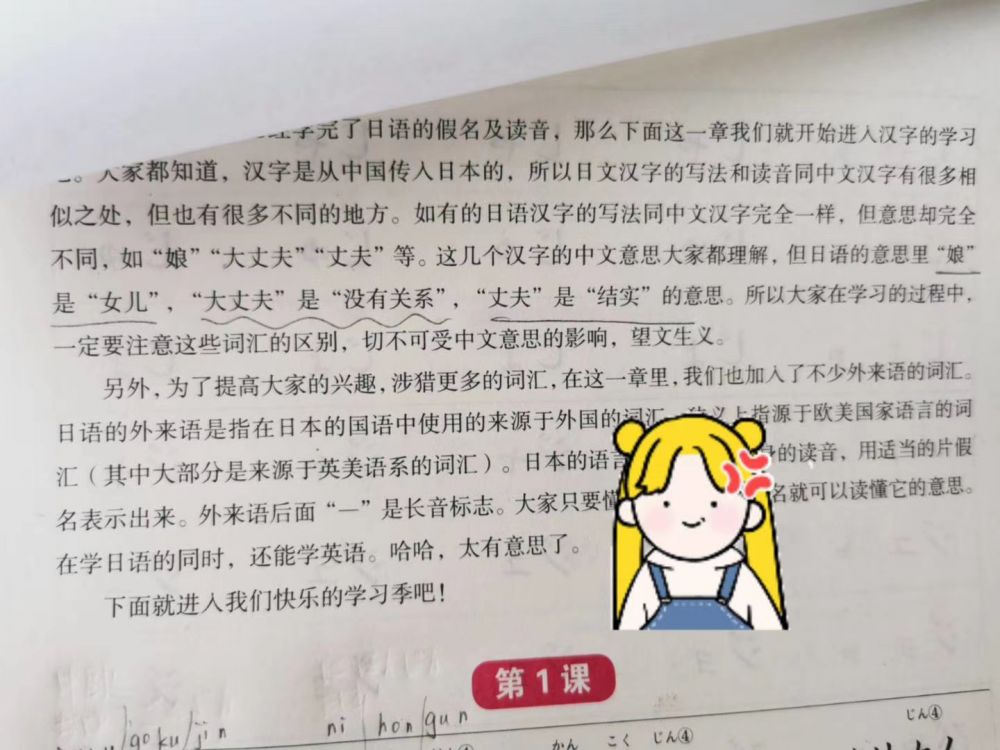 学完了日语的假名及读音，那么下面这一章我们就开始进入汉字的学习
。大家都知道，汉字是从中国传入日本的，所以日文汉字的写法和读音同中文汉字有很多相
似之处，但也有很多不同的地方。如有的日语汉字的写法同中文汉字完全一样，但意思却完全
不同，如“娘”“大丈夫”“丈夫”等。这几个汉字的中文意思大家都理解，但日语的意思里“娘”
是“女儿”，“大丈夫”是“没有关系”，“丈夫”是“结实”的意思。所以大家在学习的过程中，
一定要注意这些词汇的区别，切不可受中文意思的影响，望文生义。
另外，为了提高大家的兴趣，涉猎更多的词汇，在这一章里，我们也加入了不少外来语的词汇。
日语的外来语是指在日本的国语中使用的来源于外国的词汇，狭义上指源于欧美国家语言的词
汇（其中大部分是来源于英美语系的词汇）。日本的语言 身的读音，用适当的片假
名表示出来。外来语后面“—”是长音标志。大家只要懂 名就可以读懂它的意思。
在学日语的同时，还能学英语。哈哈，太有意思了。
下面就进入我们快乐的学习季吧！
第1课
goku/jin ni/hon/gun
かん こく じん④ じん④